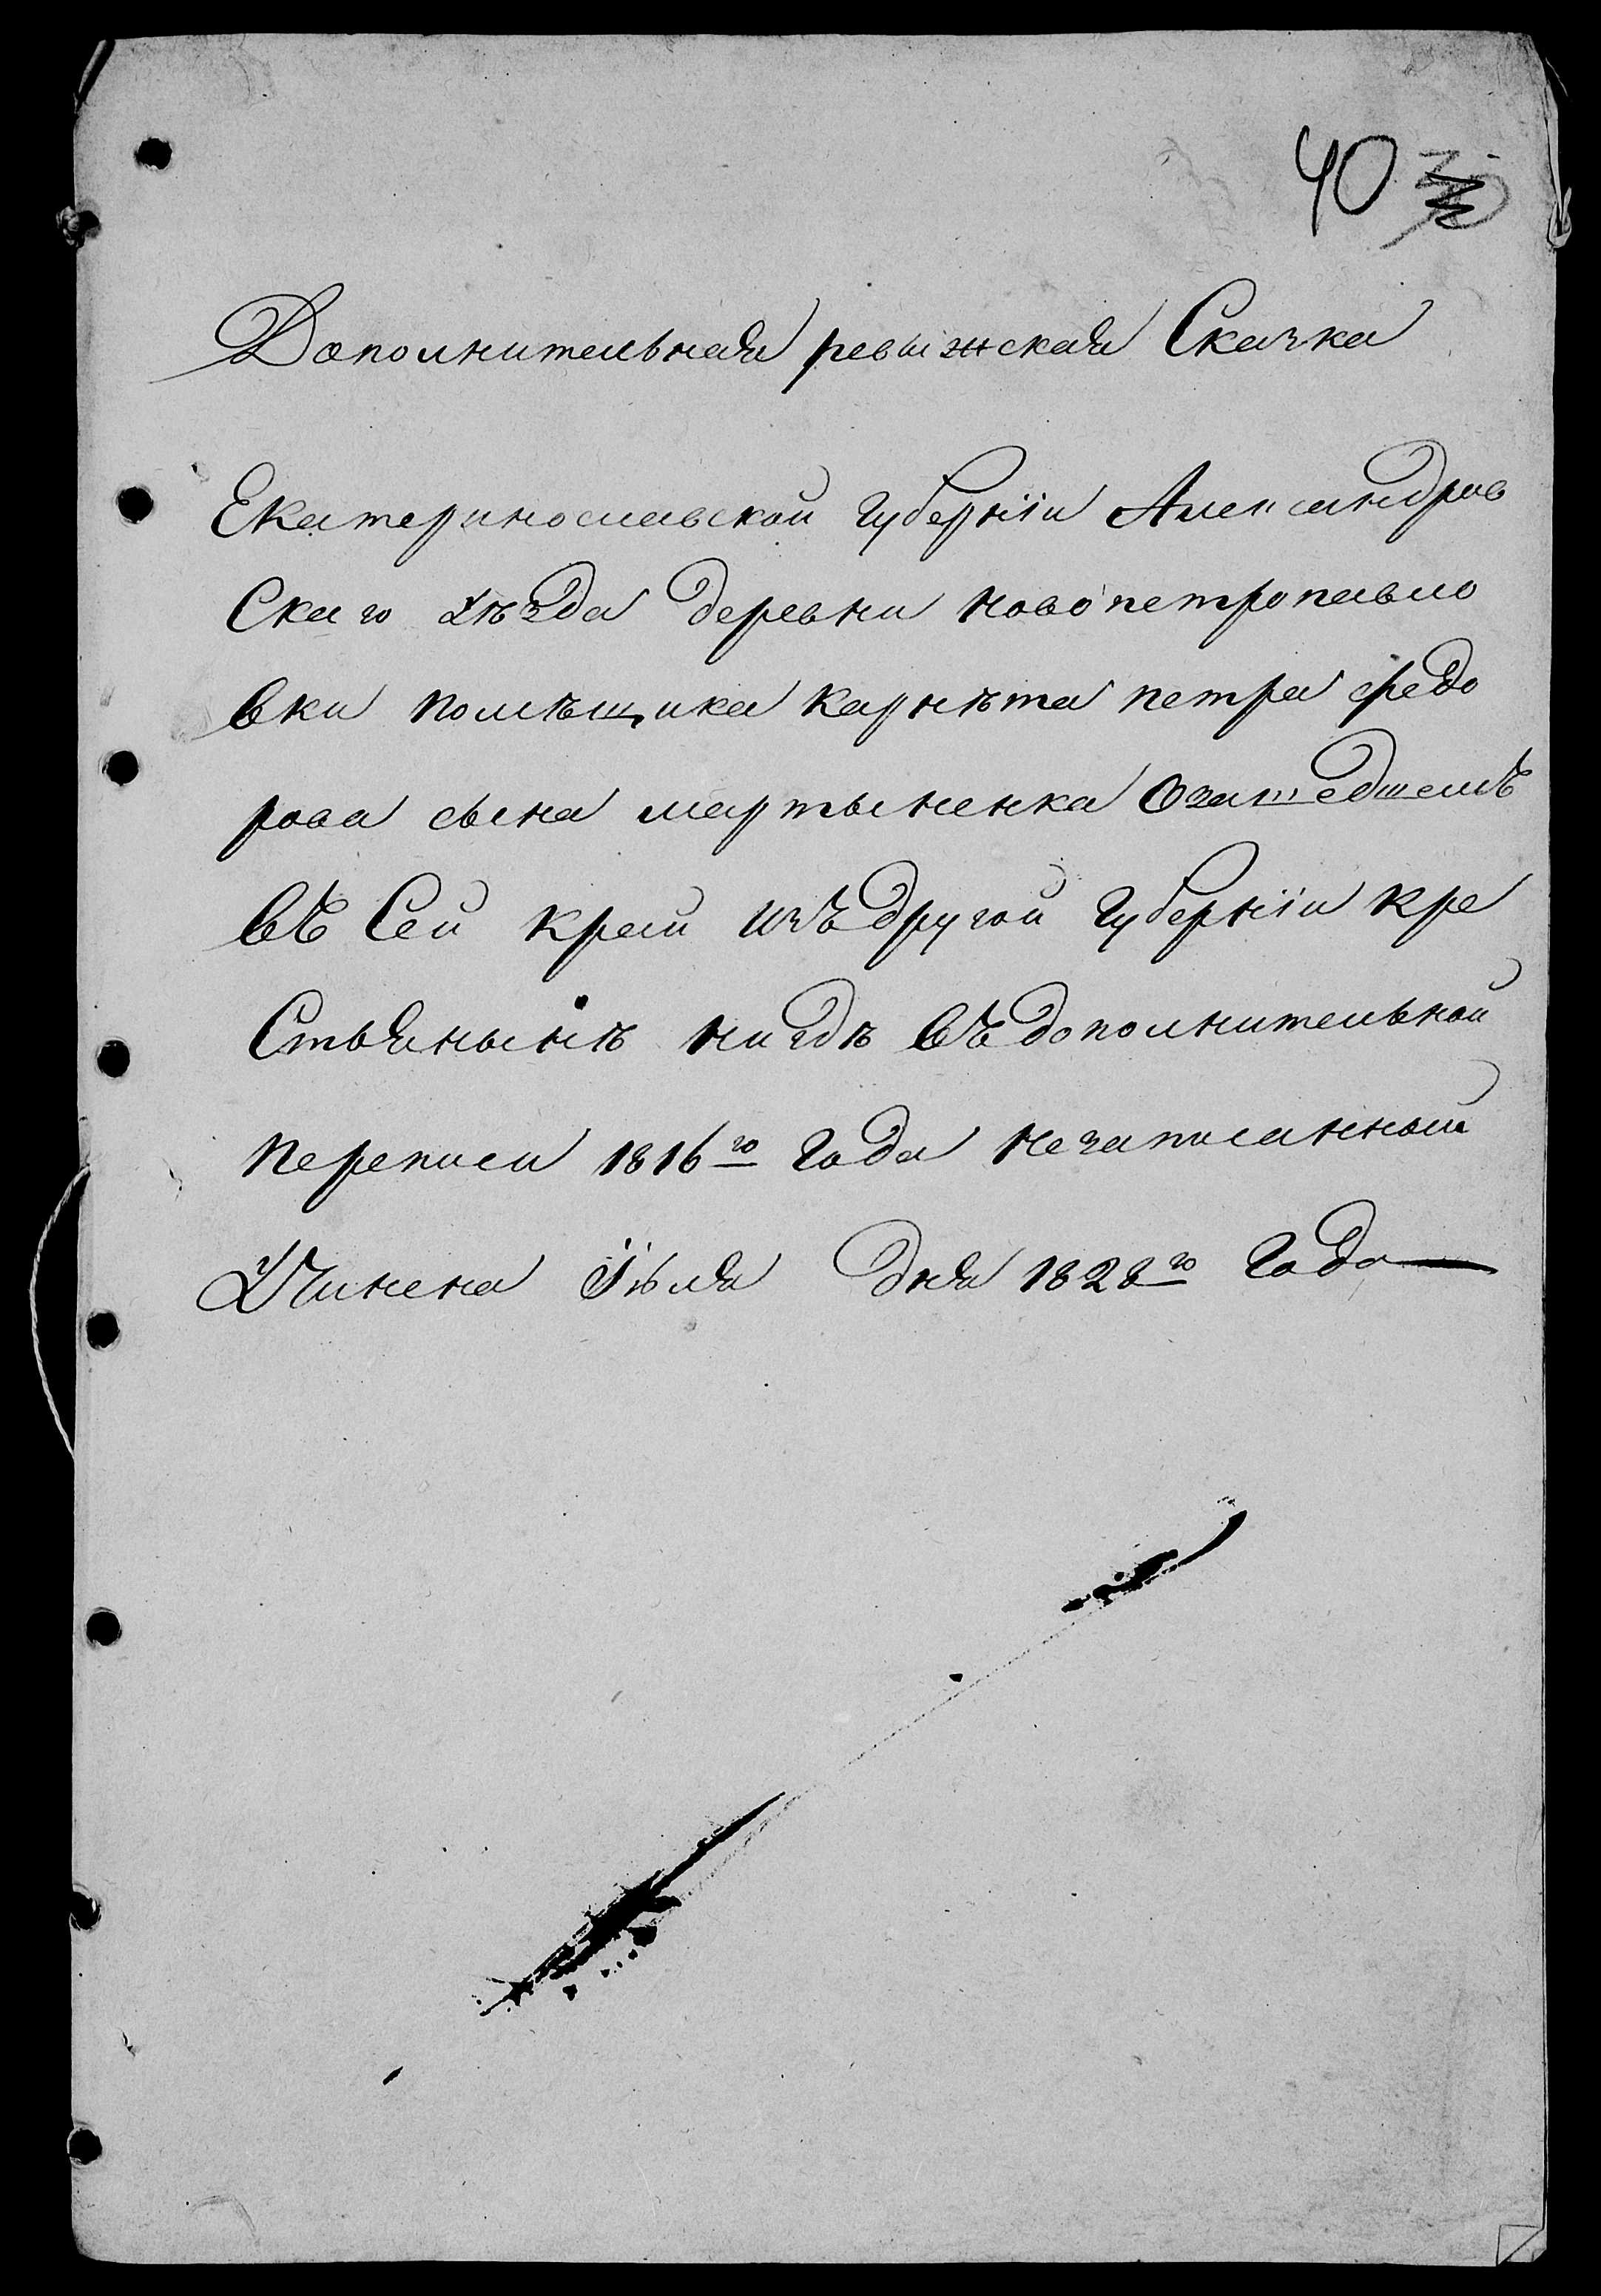 40
Дополнительная ревижская Сказка
Екатеринославской губернїи Александров
Скаго уѣзда деревни новопетропавло
вки помѣщика карнѣта петра федо
рова сына мартыненка Озашедшемъ
въ Сей край изъ другой губернїи кре
Стьянынѣ нигдѣ въ дополнительной
переписи 1816го года незаписанной
Учинена Їюля дня 1828го года